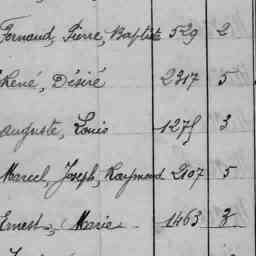 Fernand, Pierre, Baptiste 529 2
René, Désiré 2317 5
Auguste, Louis 1275 3
Marcel, Joseph, Raymond 2107 5
Ernest, Marie 1463 3